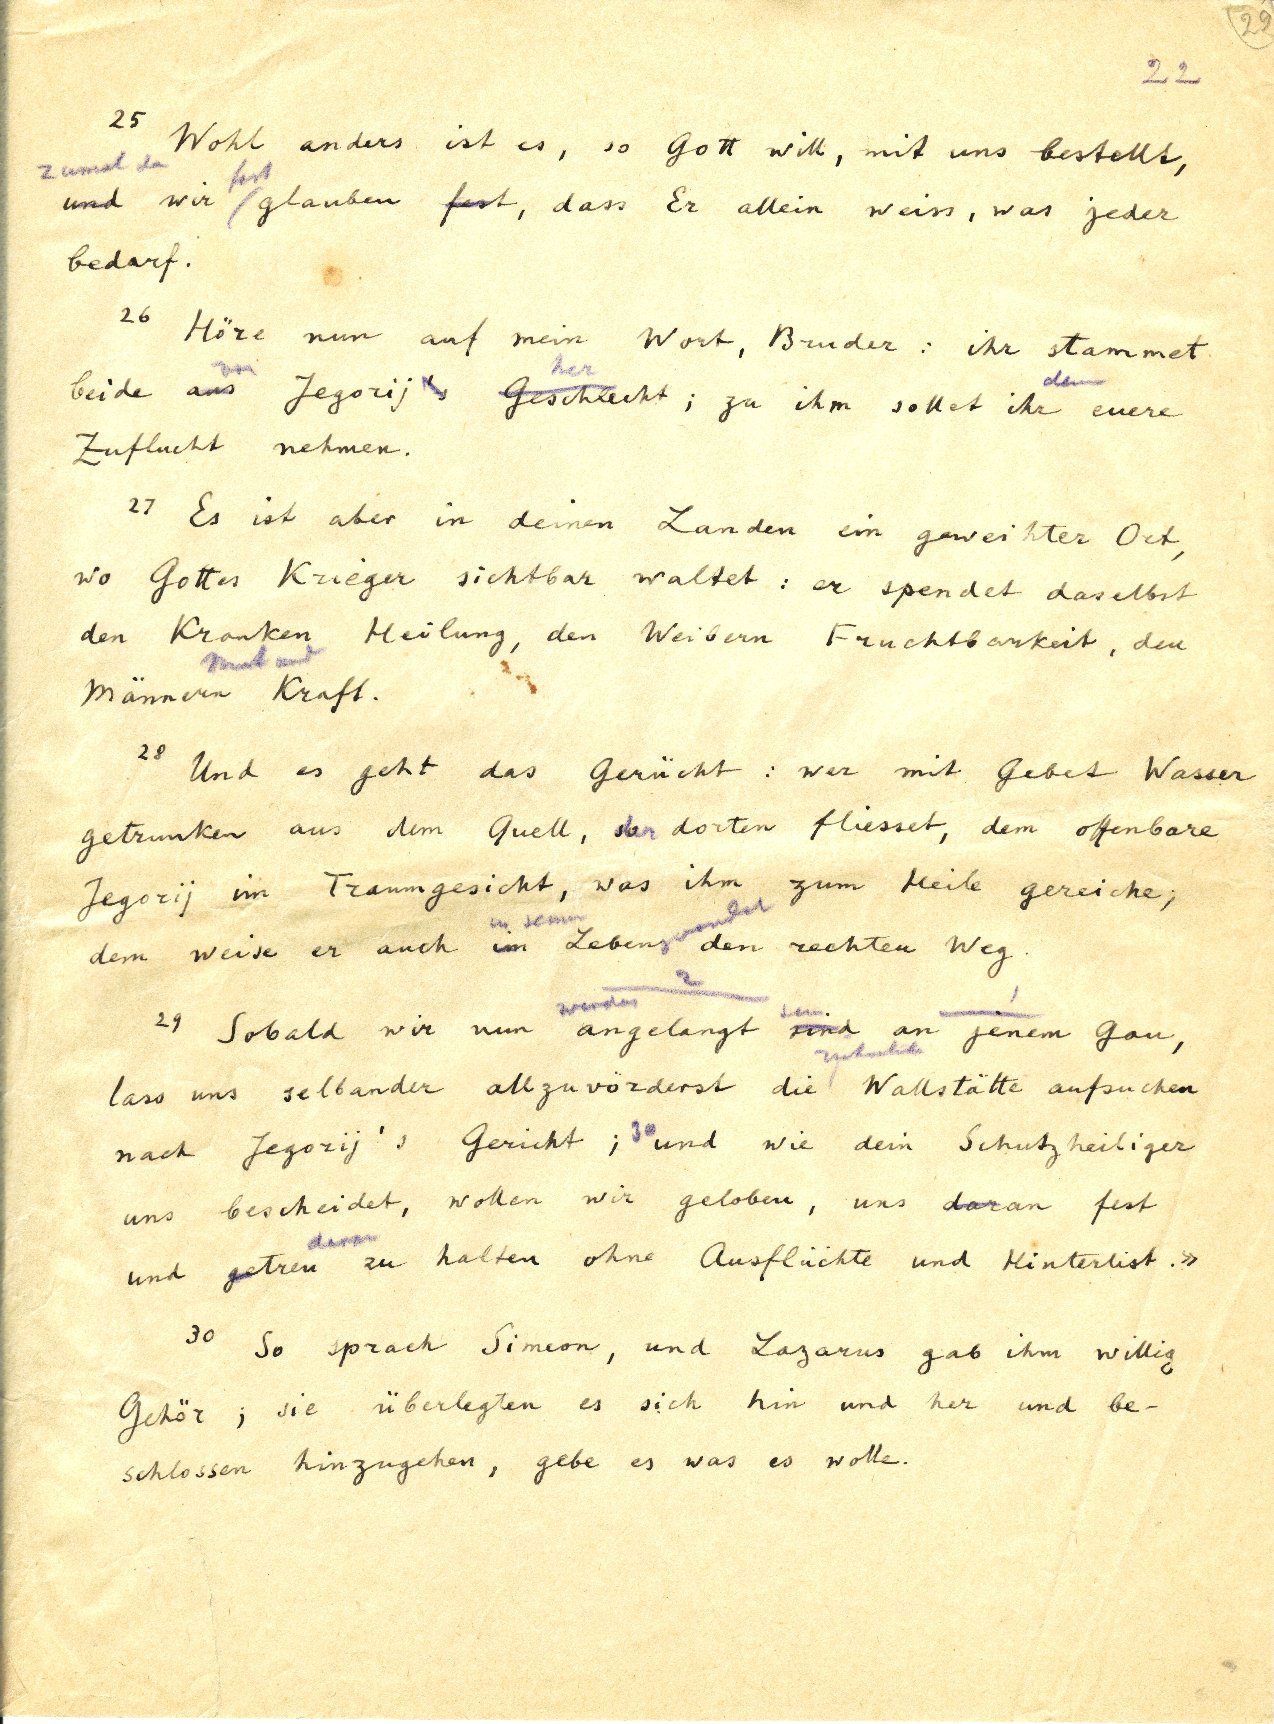 29
22
25 Wohl anders ist es, so Gott will, mit uns bestellt,
zumal da fest
und wir glauben fest, dass Er allein weiss, was jeder
bedarf.
26 Höre nun auf mein Wort, Bruder : ihr stammet
von her denn
beide aus Jegorij's Geschlecht ; zu ihm sollet ihr euere
Zuflucht nehmen.
27 Es ist aber in deinen Landen ein geweihter Ort,
wo Gottes Krieger sichtbar waltet : er spendet daselbst
den Kranken Heilung, den Weibern Fruchtbarkeit, den
Mut und
Männern Kraft.
28 Und es geht das Gerücht : wer mit Gebet Wasser
getrunken aus dem Quell, der dorten fliesset, dem offenbare
Jegorij im Traumgesicht, was ihm zum Heile gereiche ;
in seinem wandel
dem weise er auch im Lebens den rechten Weg.
2 1
werden sein
29 Sobald wir nun angelangt sind an jenem Gau,
lass uns selbander allzuvörderst die Wallstätte aufsuchen
nach Jegorij's Gericht ; 30 und wie dein Schutzheiliger
uns bescheidet, wollen wir geloben, uns daran fest
daran
und getreu zu halten ohne Ausflüchte und Hinterlist.»
30 So sprach Simeon, und Lazarus gab ihm willig
Gehör ; sie überlegten es sich hin und her und be-
schlossen hinzugehen, gebe es was es wolle.